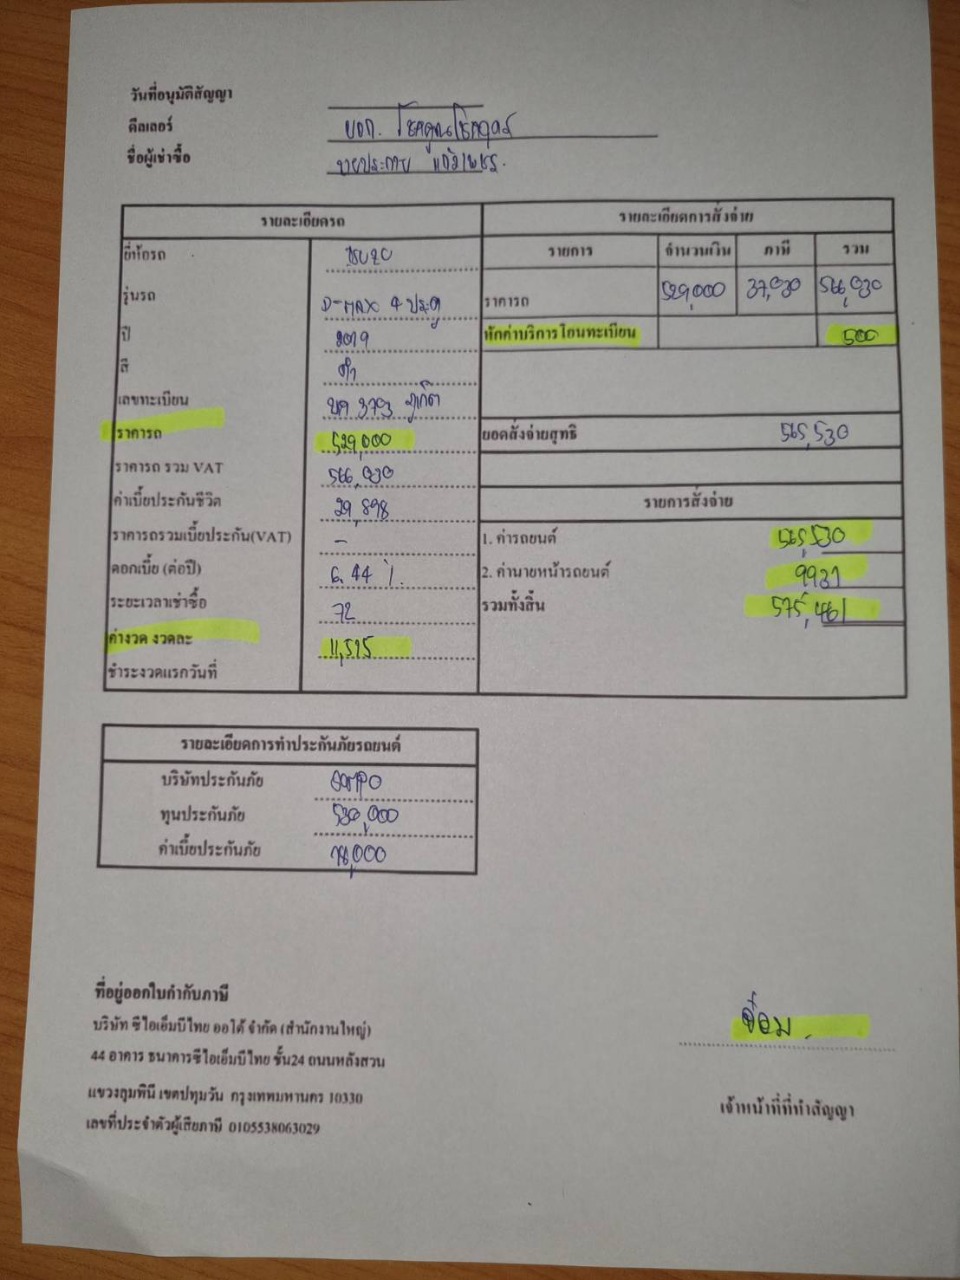 วันที่อนุมัติสัญญา
ดีลเลอร์ บจก. โชคคูณโชค
ชื่อผู้เช่าซื้อ นายประกาย แก้วเพชร
รายละเอียดรถ
ยี่ห้อรถ ISUZU
รุ่นรถ D-MAX 4 ประตู
ปี 2019
สี ดำ
เลขทะเบียน 3793 ภูเก็ต
ราคารถ 529,000
ราคารถ รวม VAT 566,030
ค่าเบี้ยประกันชีวิต 29,898
ราคารถรวมเบี้ยประกัน(VAT) -
ดอกเบี้ย (ต่อปี) 6.44 %
ระยะเวลาเช่าซื้อ 72
ค่างวด งวดละ 11,515
ชำระงวดแรกวันที่
รายละเอียดการสั่งจ่าย
รายการ จำนวนเงิน ภาษี รวม
ราคารถ 529,000 37,030 566,030
หักค่าบริการโอนทะเบียน 500
ยอดสั่งจ่ายสุทธิ 565,530
รายการสั่งจ่าย
1. ค่ารถยนต์ 565,530
2. ค่านายหน้ารถยนต์ 9931
รวมทั้งสิ้น 575,461
รายละเอียดการทำประกันภัยรถยนต์
บริษัทประกันภัย SOMPO
ทุนประกันภัย 530,000
ค่าเบี้ยประกันภัย 18,000
ที่อยู่ออกใบกำกับภาษี
บริษัท ซีไอเอ็มบีไทย ออโต้ จำกัด (สำนักงานใหญ่)
44 อาคาร ธนาคารซีไอเอ็มบีไทย ชั้น24 ถนนหลังสวน
แขวงลุมพินี เขตปทุมวัน กรุงเทพมหานคร 10330
เลขที่ประจำตัวผู้เสียภาษี 0105538063029
เจ้าหน้าที่ที่ทำสัญญา